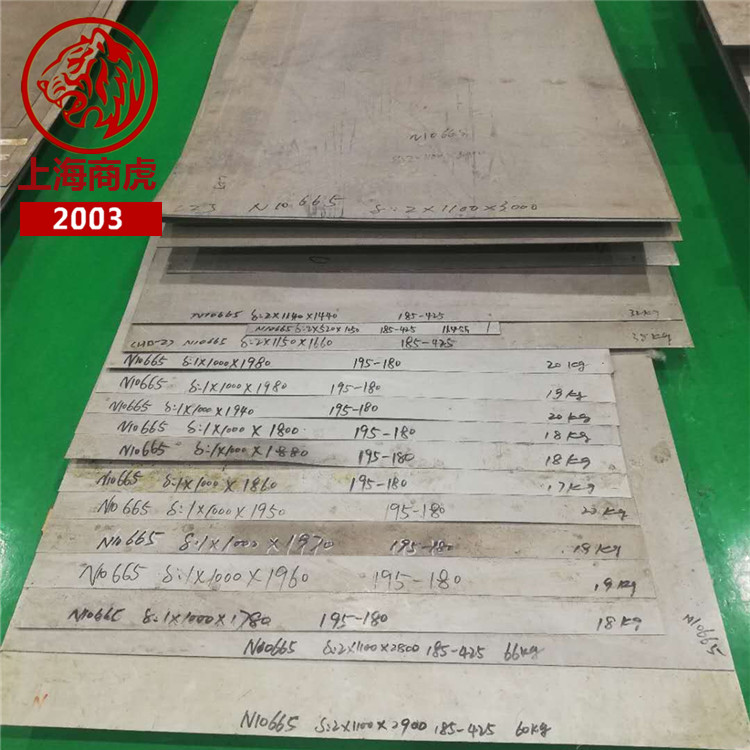 上海商虎
2003
N10665
N10665 δ:2×1100×3000
N10665 δ:2×1140×1440 185-425 32kg
N10665 δ:2×520×1150 185-425
N10665 δ:2×1150×1660 185-425 35kg
N10665 δ:1×1000×1980 195-180 20kg
N10665 δ:1×1000×1980 195-180 19kg
N10665 δ:1×1000×1940 195-180 20kg
N10665 δ:1×1000×1800 195-180 18kg
N10665 δ:1×1000×1880 195-180 18kg
N10665 δ:1×1000×1860 195-180 17kg
N10665 δ:1×1000×1950 195-180 20kg
N10665 δ:1×1000×1970 195-180 19kg
N10665 δ:1×1000×1960 195-180 19kg
N10665 δ:1×1000×1780 195-180 18kg
N10665
N10665 δ:2×1100×2800 185-425 66kg
N
N10665 δ:2×1100×2900 185-425 60kg